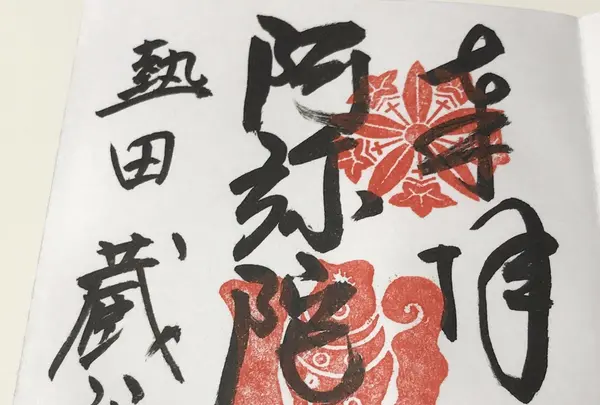 奉拝
阿弥陀
熱田
蔵